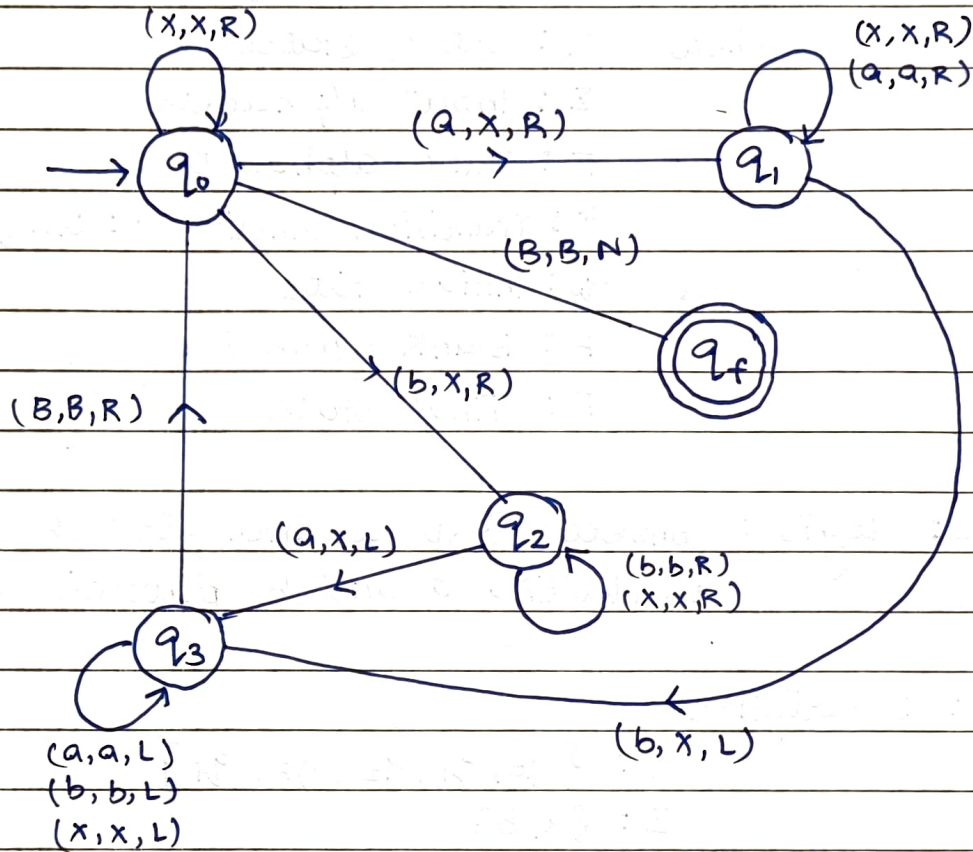 (X,X,R)
(X,X,R)
(a,a,R)
(a,X,R)
q₀
q₁
(B,B,N)
q_f
(b,X,R)
(B,B,R)
q₂
(a,X,L)
(b,b,R)
(X,X,R)
q₃
(b,X,L)
(a,a,L)
(b,b,L)
(X,X,L)